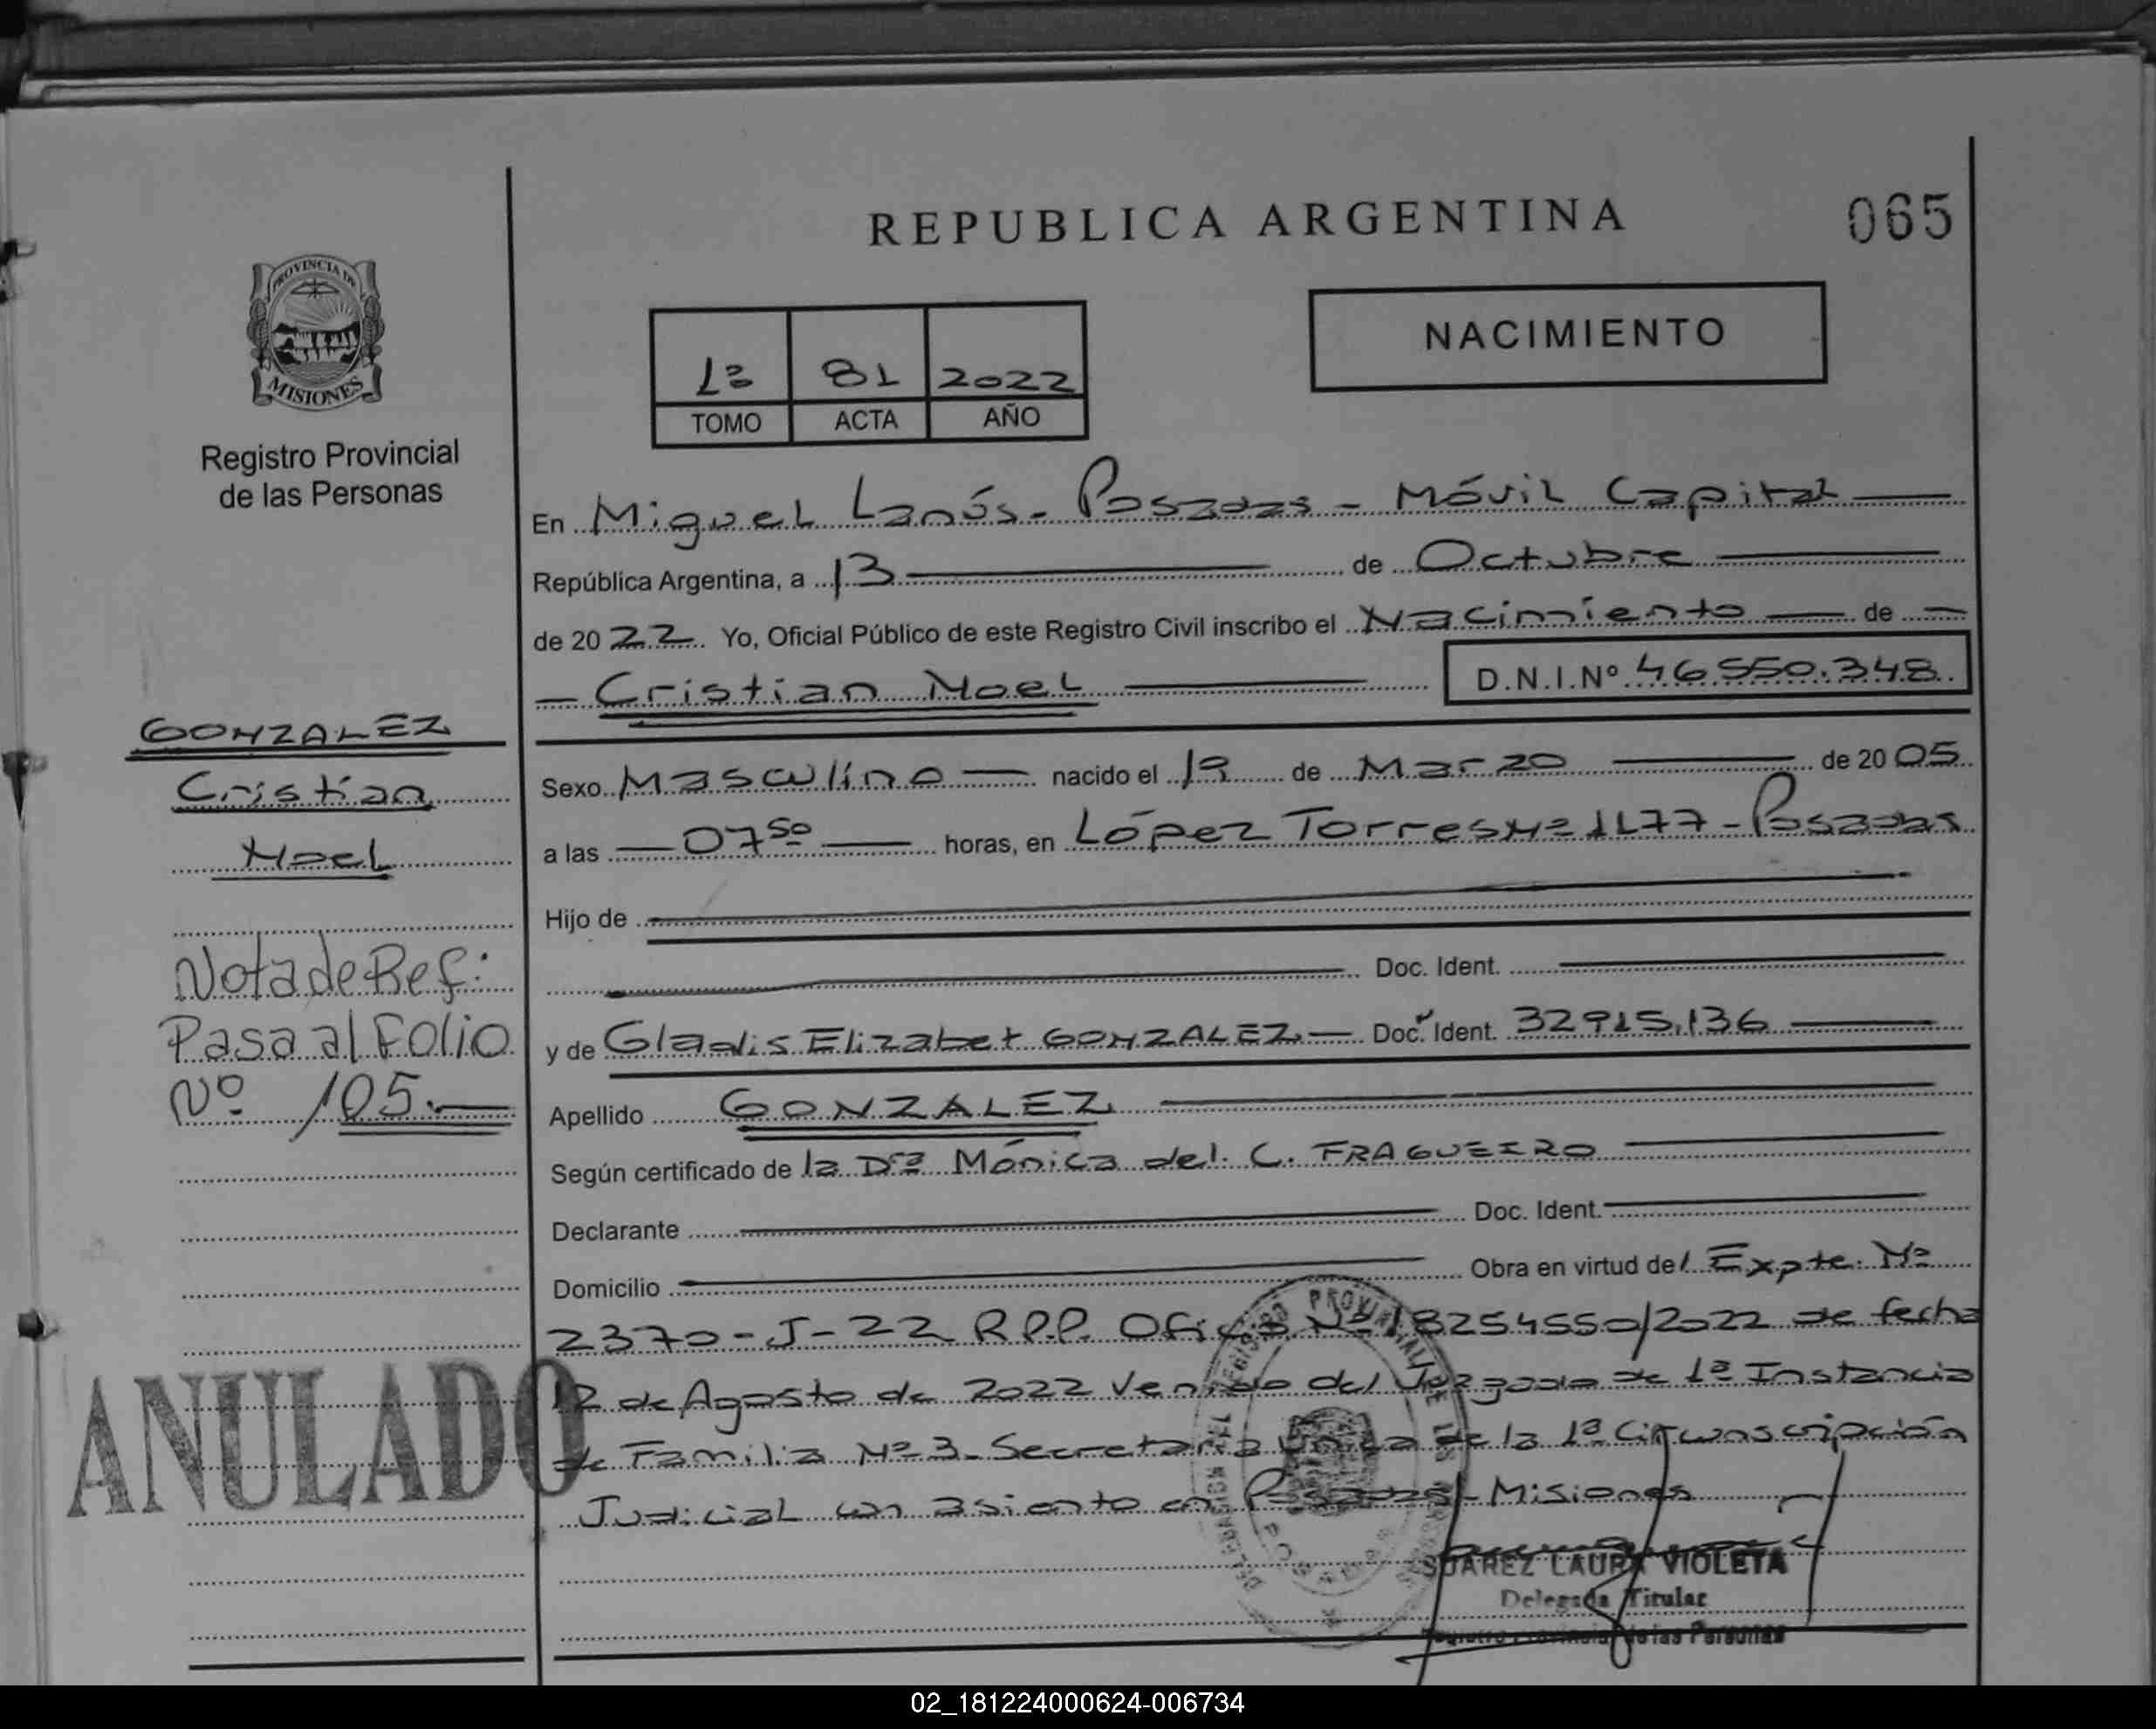 REPUBLICA ARGENTINA
065
PROVINCIA DE
MISIONES
Registro Provincial
de las Personas
NACIMIENTO
1º 81 2022
TOMO ACTA AÑO
En Miguel Lanús - Posadas - Móvil Capital
República Argentina, a 13 de Octubre
de 2022. Yo, Oficial Público de este Registro Civil inscribo el Nacimiento de
Cristian Noel
D.N.I.Nº 46.550.348
GONZALEZ
Cristian
Noel
Sexo Masculino nacido el 19 de Marzo de 2005
a las 07 50 horas, en López Torres Nº 1177 - Posadas
Hijo de
Doc. Ident.
y de Gladis Elizabet GONZALEZ Doc. Ident. 32915.136
Apellido GONZALEZ
Según certificado de la Dra Mónica del C. FRAGUEIRO
Declarante Doc. Ident.
Domicilio Obra en virtud del Expte. Nº
2370-J-22 R.P.P. Oficio Nº 18254550/2022 de fecha
12 de Agosto de 2022 Venido del Juzgado de 1ª Instancia
de Familia Nº 3 - Secretaria Unica de la 1ª Circunscripción
Judicial con asiento en Posadas - Misiones
Nota de Ref:
Pasa al Folio
Nº 105.-
ANULADO
SUAREZ LAURA VIOLETA
Delegada Titular
Registro Provincial de las Personas
02_181224000624-006734